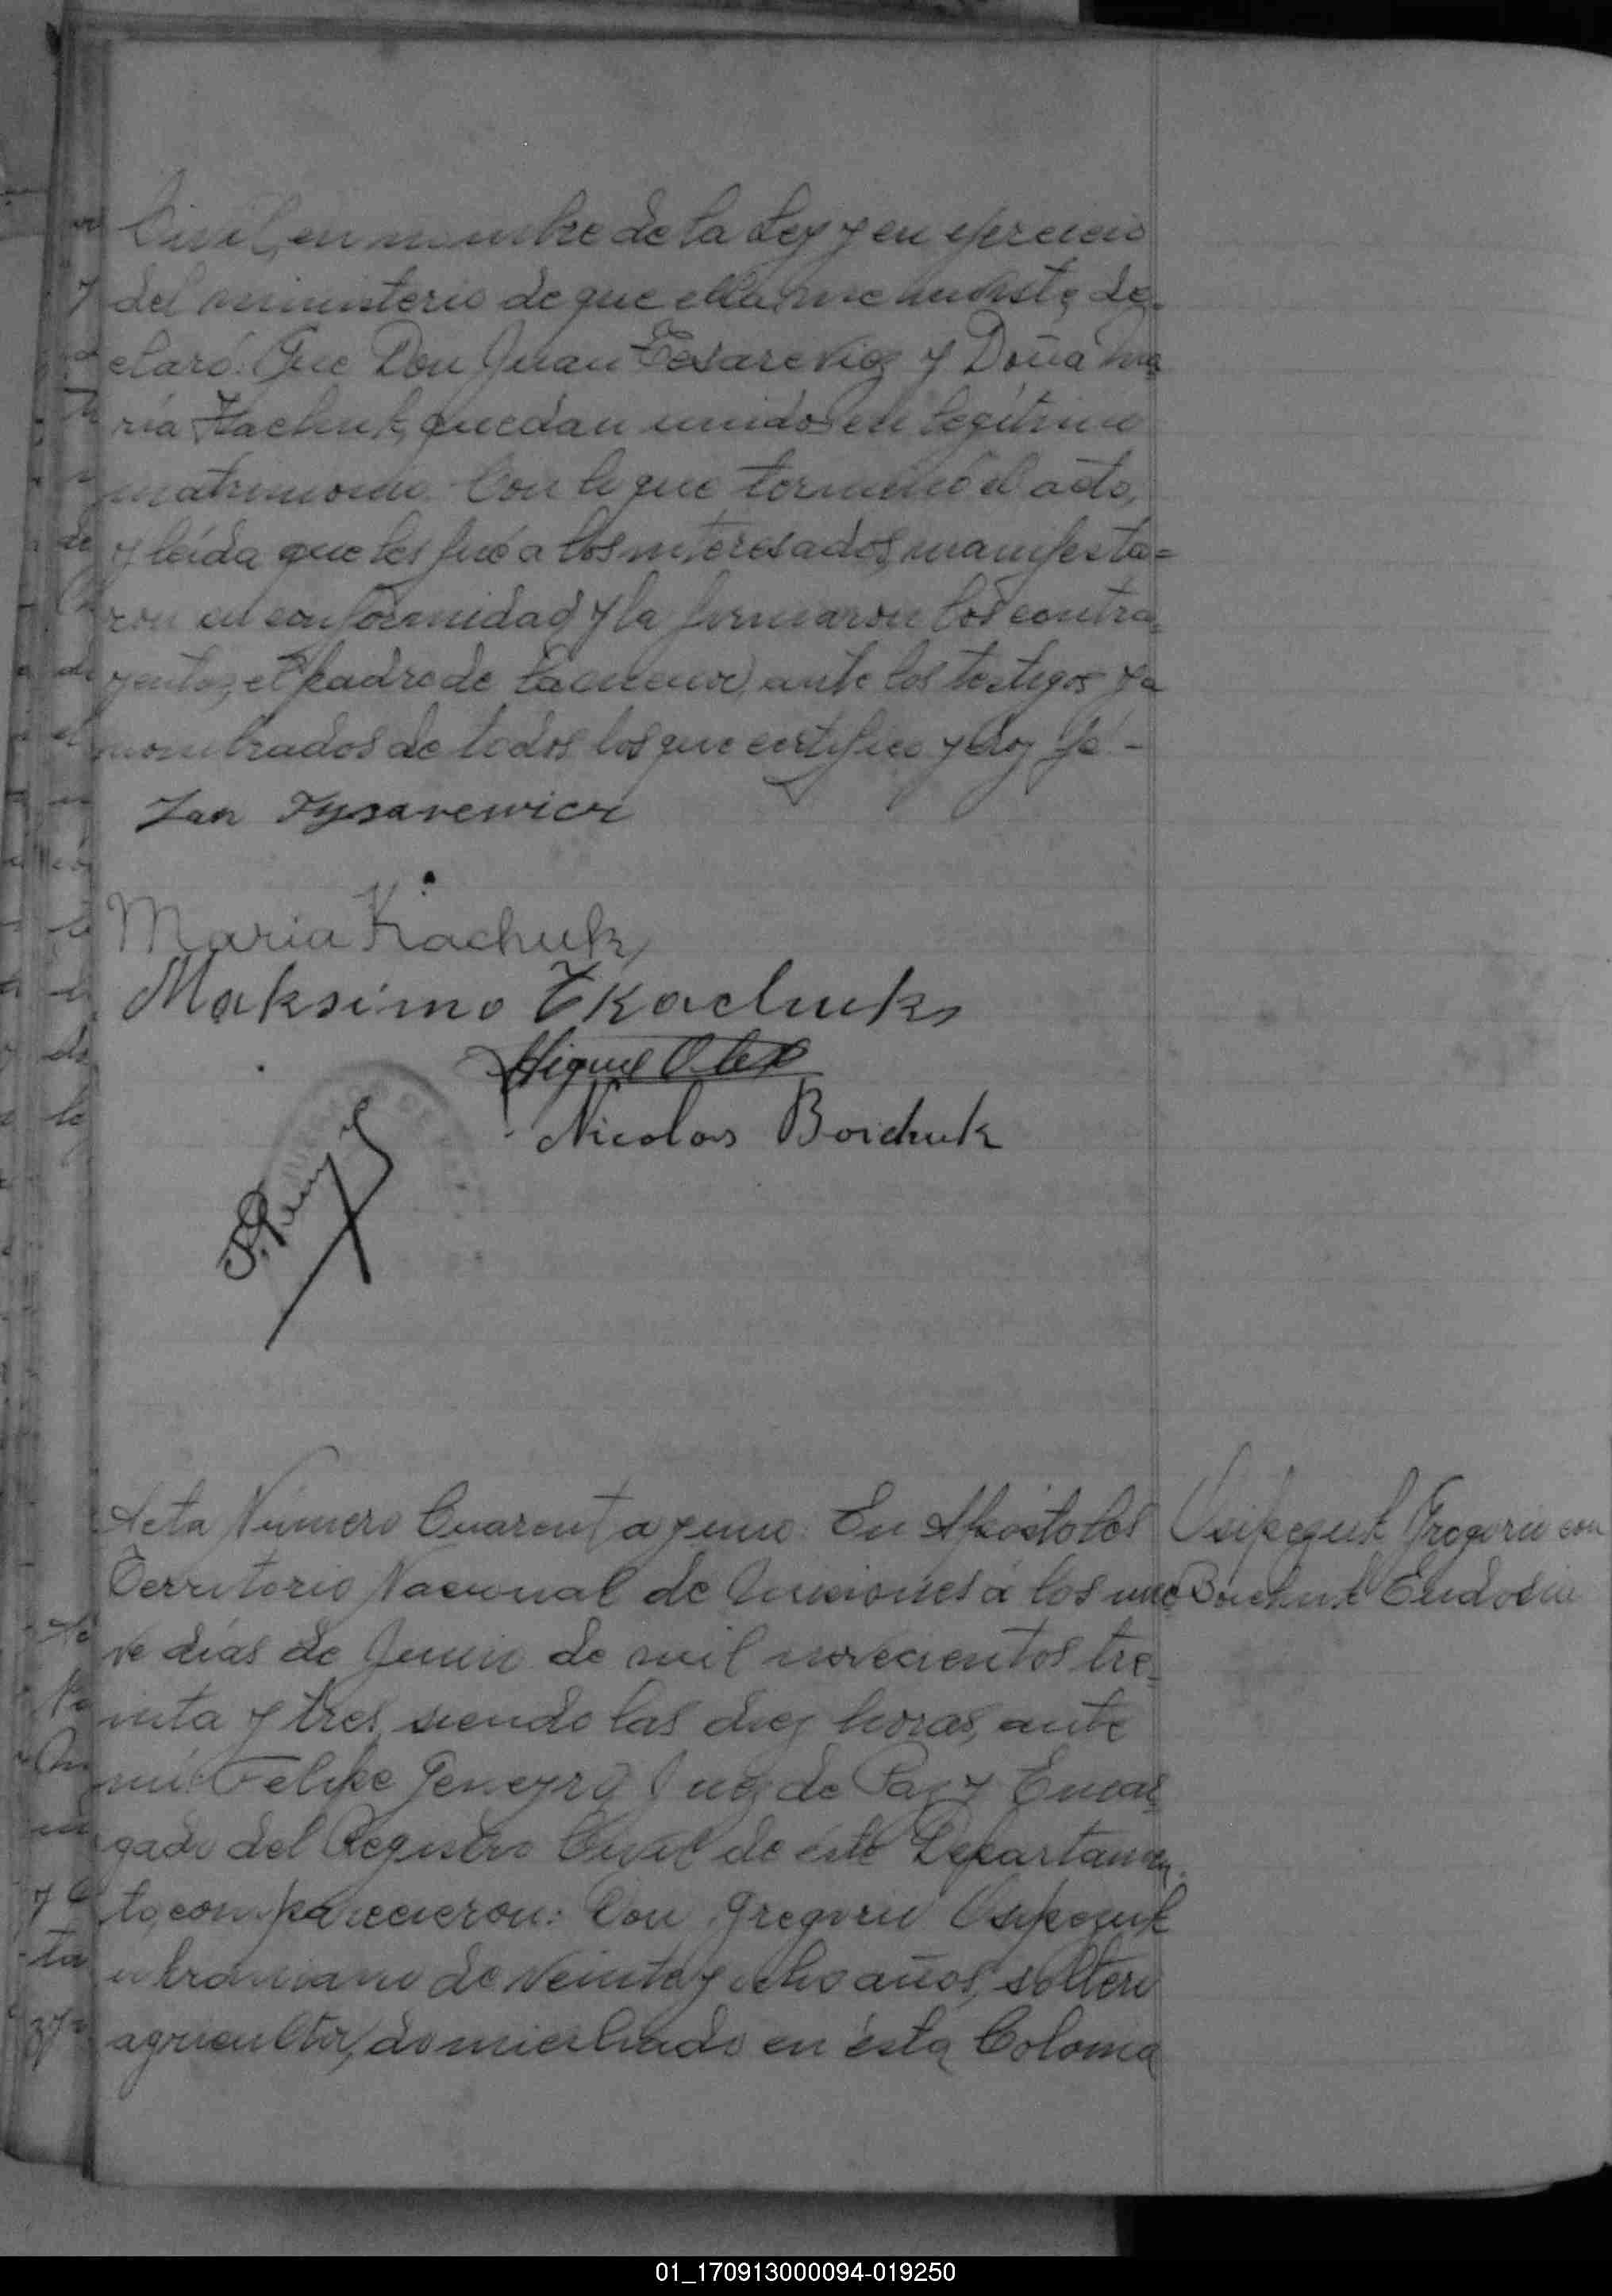 Civil, en nombre de la Ley y en ejercicio
del ministerio de que ella me inviste, de-
claró: Que Don Juan Tesarevicz y Doña Ma-
ria Tkachuk, quedan unidos en legítimo
matrimonio. Con lo que terminó el acto,
y leída que les fué a los interesados, manifesta=
ron su conformidad y la firmaron los contra-
yentes, el padre de la menor, ante los testigos ya
nombrados de todos los que certifico y doy fé.-
Jan Tysarewicz
Maria Kachuk
Maksimo Tkachuk
Miguel Olex
Nicolas Boichuk
Acta Número Cuarenta y uno: En Apóstoles
Territorio Nacional de Misiones á los nue
ve días de Junio de mil novecientos tre-
inta y tres, siendo las diez horas, ante
mí: Felipe Geneyro Juez de Paz y Encar-
gado del Registro Civil de éste Departamen-
to, comparecieron: Don Gregorio Osipczuk
ukraniano de veinte y ocho años, soltero
agricultor, domiciliado en ésta Colonia
Osipczuk Gregorio con
Boichuk Eudosia
01_170913000094-019250